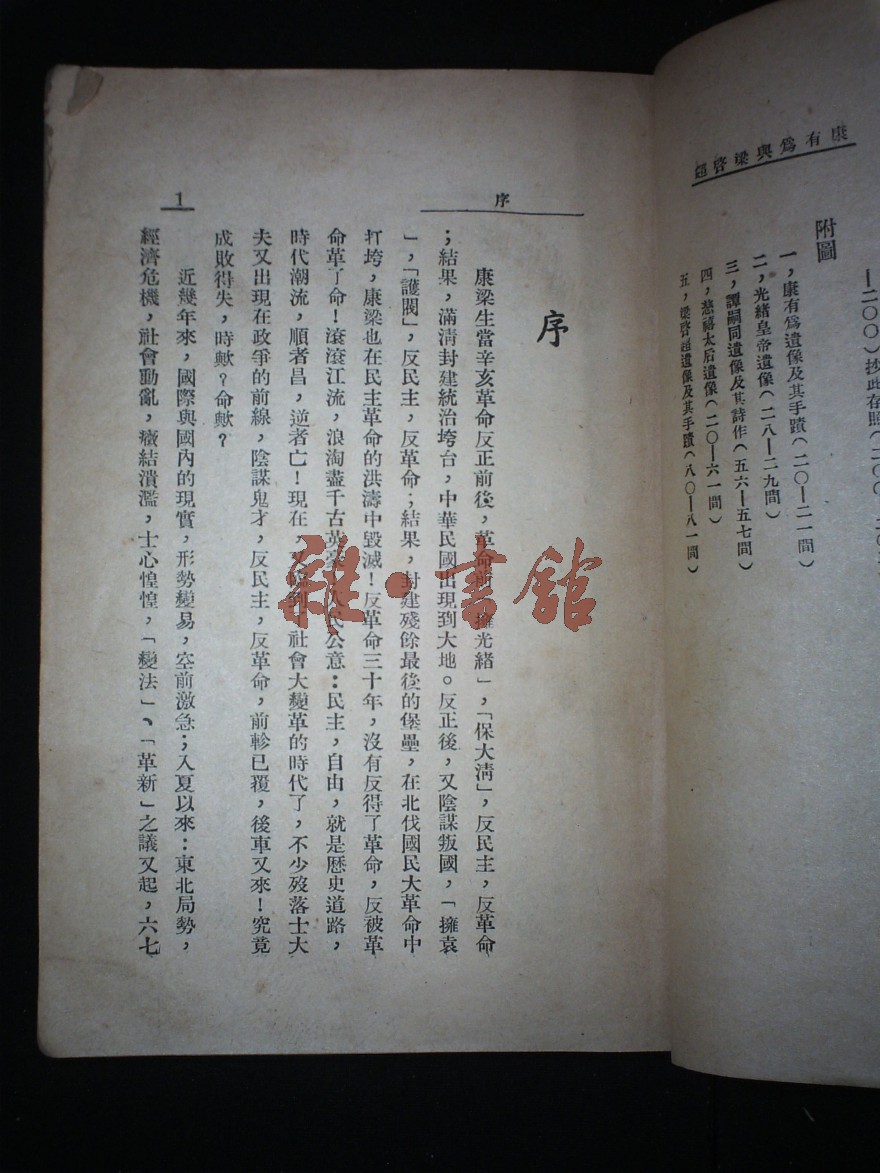 康有爲與梁啓超
—二〇〇)抄此存照(二〇〇
附圖
一,康有爲遺像及其手蹟(二〇—二一間)
二,光緒皇帝遺像(二八—二九間)
三,譚嗣同遺像及其詩作(五六—五七間)
四,慈禧太后遺像(二〇—六一間)
五,梁啓超遺像及其手蹟(八〇—八一間)
序
1
序
康梁生當辛亥革命反正前後,革命前,擁光緒」,「保大淸」,反民主,反革命
;結果,滿淸封建統治垮台,中華民國出現到大地。反正後,又陰謀叛國,「擁袁
」,「護閥」,反民主,反革命;結果,封建殘餘最後的堡壘,在北伐國民大革命中
打垮,康梁也在民主革命的洪濤中毀滅!反革命三十年,沒有反得了革命,反被革
命革了命!滾滾江流,浪淘盡千古英豪,人民公意:民主,自由,就是歷史道路,
時代潮流,順者昌,逆者亡!現在,到社會大變革的時代了,不少歿落士大
夫又出現在政爭的前線,陰謀鬼才,反民主,反革命,前軫已覆,後車又來!究竟
成敗得失,時歟?命歟?
近幾年來,國際與國內的現實,形勢變易,空前激急;入夏以來:東北局勢,
經濟危機,社會動亂,癥結潰濫,士心惶惶,「變法」、「革新」之議又起,六七
雜·書館